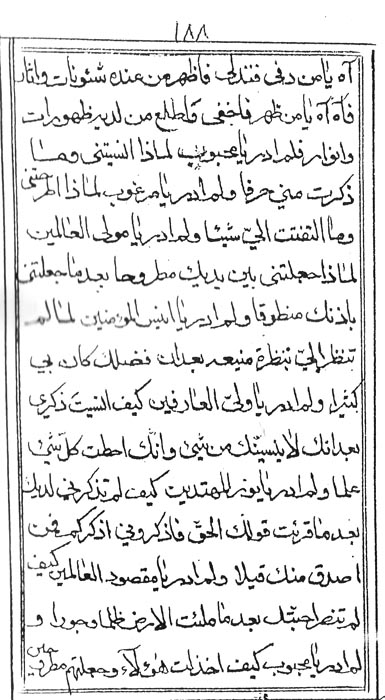 ١٨٨
آه يا من دنى فتدلى فاظهر من عنده شئونات واثار
فآه آه يا من ظهر فاخفى فاطلع من لديه ظهورات
وانوار فلم ادر يا محبوب لماذا انسيتنى وما
ذكرت مني حرفا ولم ادر يا مرغوب لماذا اطرحتنى
وما التفتت اليّ شيئا ولم ادر يا مولى العالمين
لماذا جعلتنى بين يديك مطروحا بعد ما جعلتنى
باذنك منطوقا ولم ادر يا انيس المؤمنين لما لم
تنظر اليّ بنظرة منيعه بعد ان فضلك كان بي
كثيرا ولم ادر يا وليّ العارفين كيف انسيت ذكري
بعد انك لا ينسيك من شئ وانك احطت كل شئ
علما ولم ادر يا نور المهتدين كيف لم تذكرني لديك
بعد ما قرئت قولك الحق فاذكروني اذكركم فمن
اصدق منك قيلا ولم ادر يا مقصود العالمين كيف
لم تنصر احبتك بعد ما ملئت الارض ظلما وجورا و
لم ادر يا محبوب كيف اخذت هؤلآء وجعلتهم مطروحين